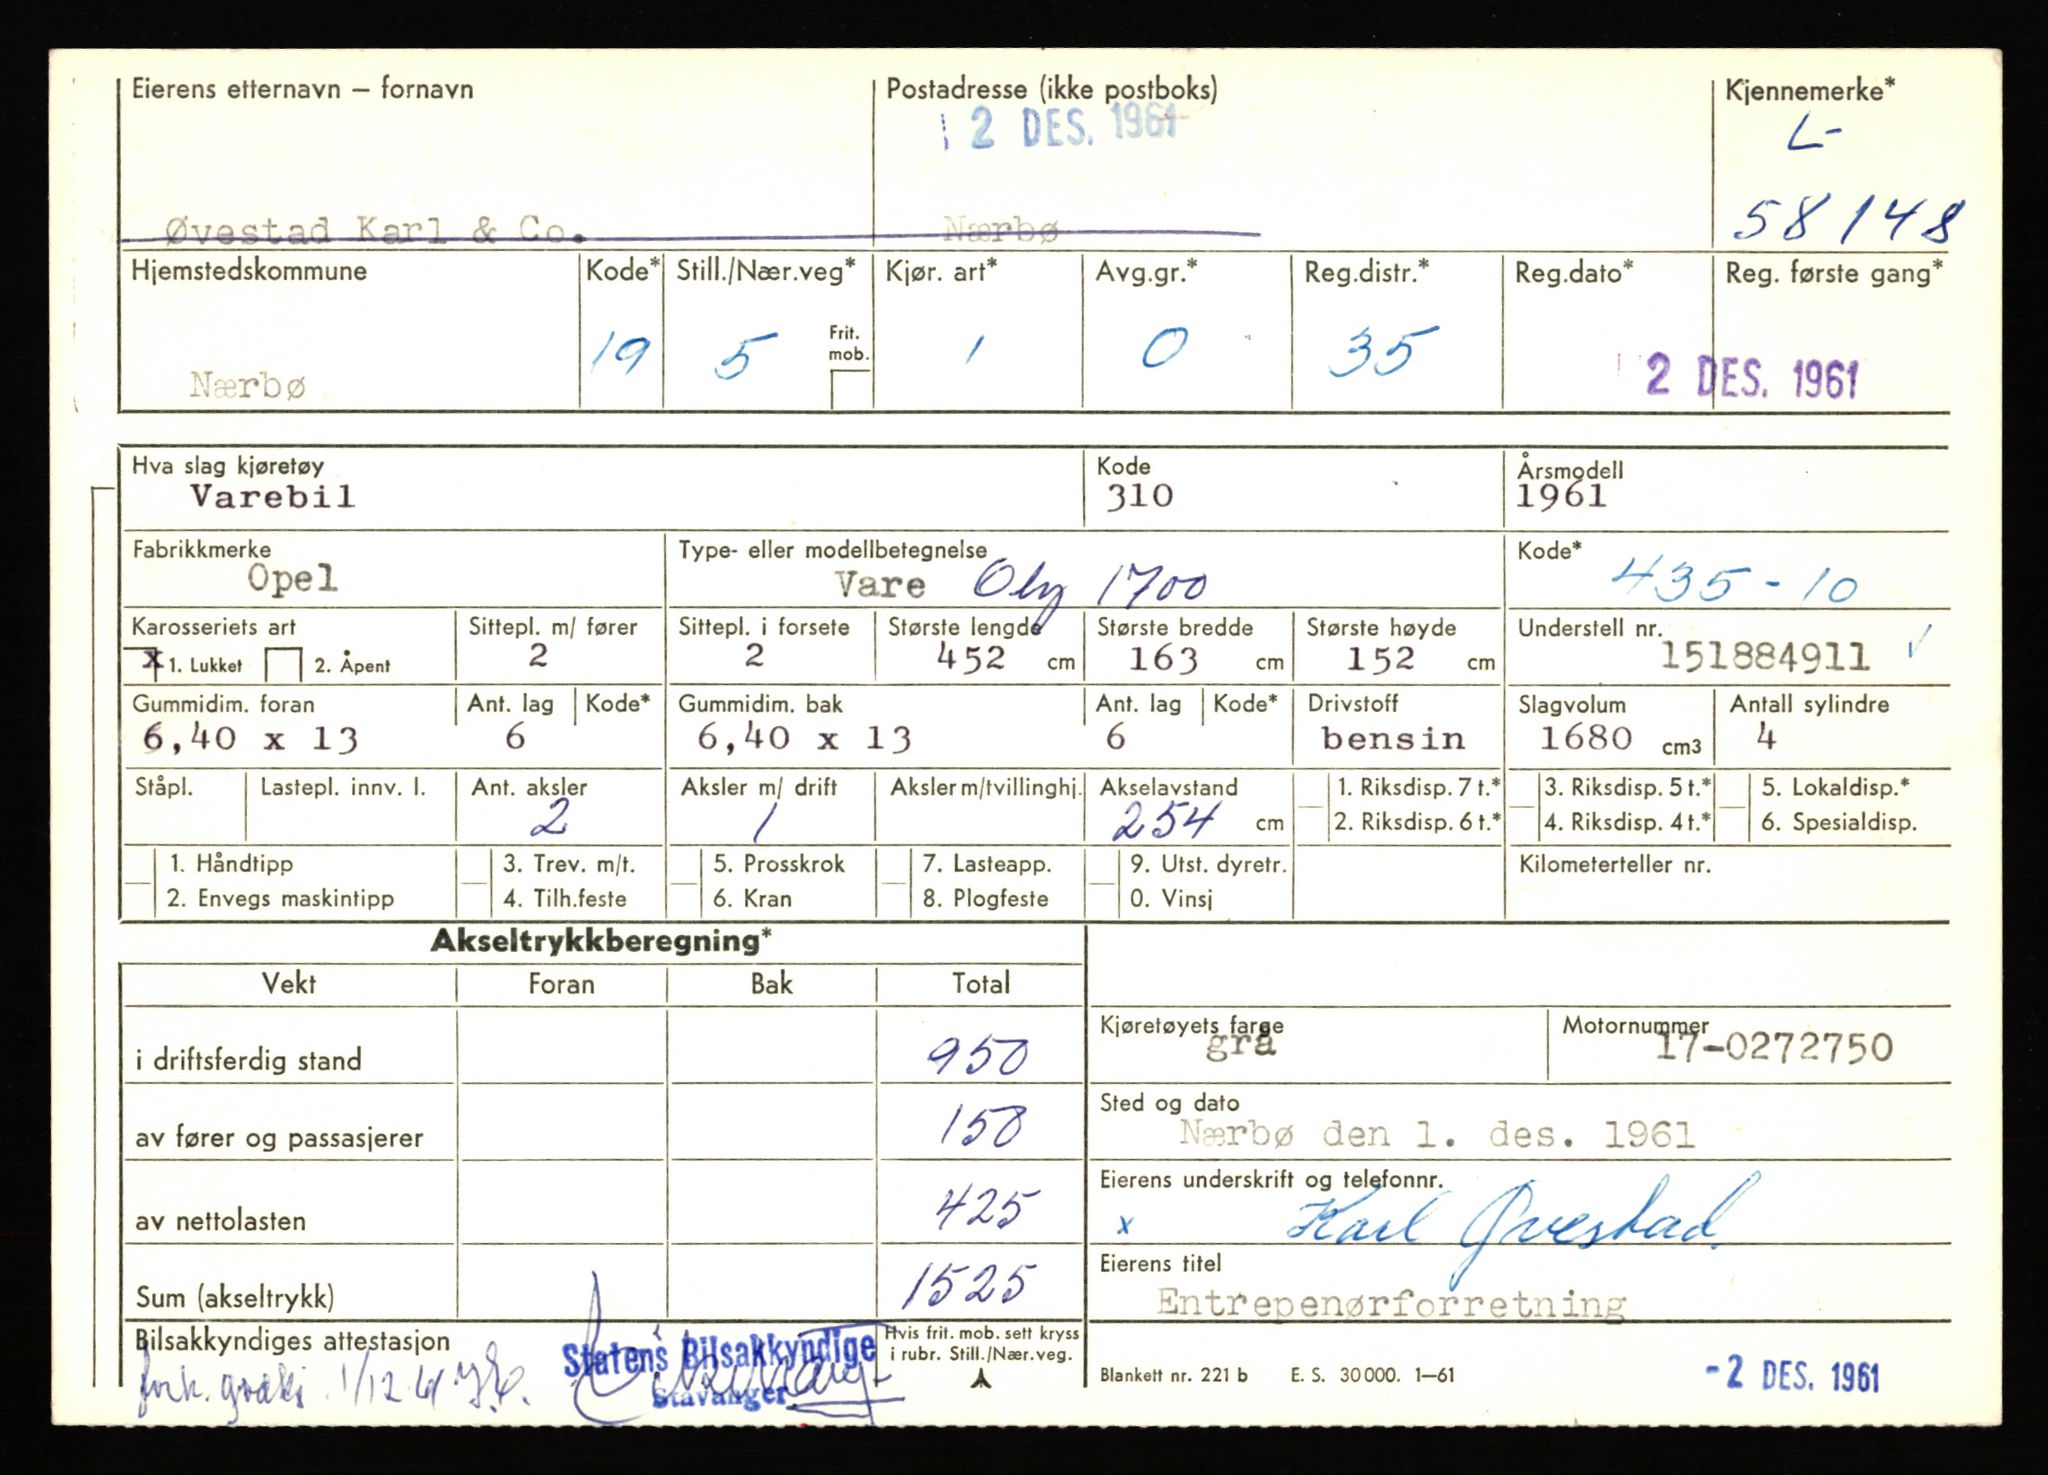 Eierens etternavn – fornavn Postadresse (ikke postboks) Kjennemerke*
2 DES. 1961 L-
Øvestad Karl & Co. Nærbø 58148
Hjemstedskommune Kode* Still./Nær.veg* Kjør. art* Avg.gr.* Reg.distr.* Reg.dato* Reg. første gang*
Frit. mob.
Nærbø 19 5 1 0 35 2 DES. 1961
Hva slag kjøretøy Kode Årsmodell
Varebil 310 1961
Fabrikkmerke Type- eller modellbetegnelse Kode*
Opel Vare Oly 1700 435-10
Karosseriets art Sittepl. m/ fører Sittepl. i forsete Største lengde Største bredde Største høyde Understell nr.
x 1. Lukket 2. Åpent 2 2 452 cm 163 cm 152 cm 151884911 ✓
Gummidim. foran Ant. lag Kode* Gummidim. bak Ant. lag Kode* Drivstoff Slagvolum Antall sylindre
6,40 x 13 6 6,40 x 13 6 bensin 1680 cm3 4
Ståpl. Lastepl. innv. l. Ant. aksler Aksler m/ drift Aksler m/tvillinghj. Akselavstand 1. Riksdisp. 7 t.* 3. Riksdisp. 5 t.* 5. Lokaldisp.*
2 1 254 cm 2. Riksdisp. 6 t.* 4. Riksdisp. 4 t.* 6. Spesialdisp.
1. Håndtipp 3. Trev. m/t. 5. Prosskrok 7. Lasteapp. 9. Utst. dyretr. Kilometerteller nr.
2. Envegs maskintipp 4. Tilh.feste 6. Kran 8. Plogfeste 0. Vinsj
Akseltrykkberegning*
Vekt Foran Bak Total
Kjøretøyets farge Motornummer
grå 17-0272750
i driftsferdig stand 950
Sted og dato
av fører og passasjerer 150 Nærbø den 1. des. 1961
Eierens underskrift og telefonnr.
av nettolasten 425 x Karl Øvestad
Eierens titel
Sum (akseltrykk) 1525 Entrepenørforretning
Bilsakkyndiges attestasjon Statens Bilsakkyndige Hvis frit. mob. sett kryss
i rubr. Still./Nær.veg.
1/12 61 Stavanger Blankett nr. 221 b E. S. 30 000. 1–61 -2 DES. 1961